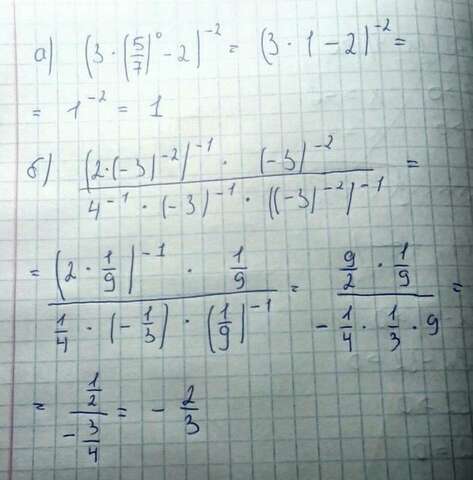 а) (3 · (5/7)⁰ - 2)⁻² = (3 · 1 - 2)⁻² =
= 1⁻² = 1
б) ((2·(-3)⁻²)⁻¹ · (-3)⁻²) / (4⁻¹ · (-3)⁻¹ · ((-3)⁻²)⁻¹) =
= ((2 · 1/9)⁻¹ · 1/9) / (1/4 · (-1/3) · (1/9)⁻¹) = (9/2 · 1/9) / (- 1/4 · 1/3 · 9) =
= (1/2) / (- 3/4) = - 2/3